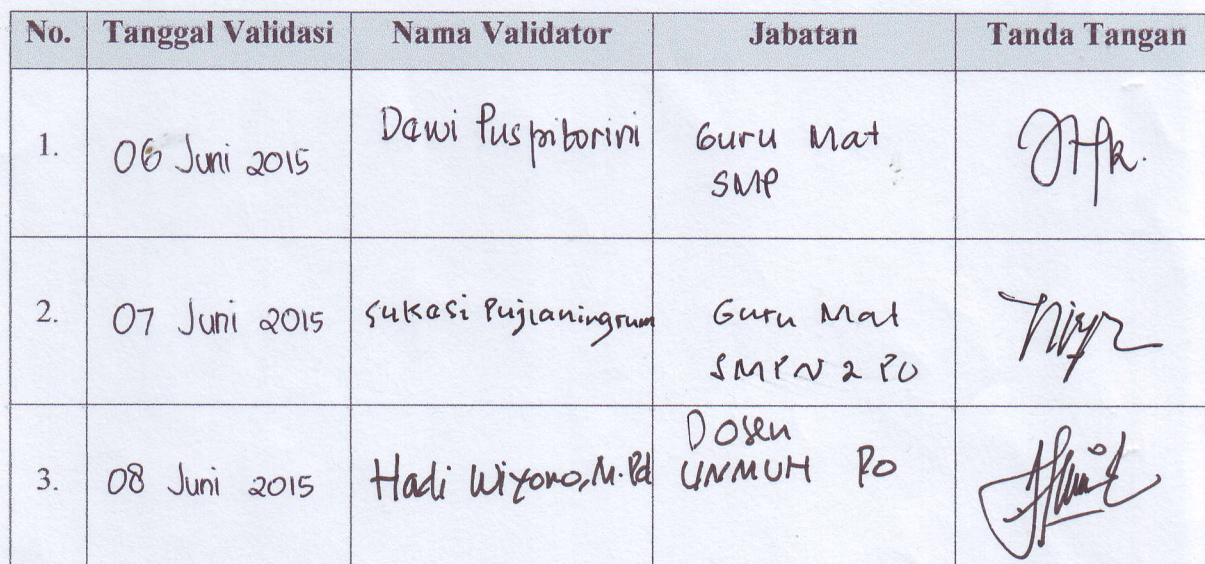 No. Tanggal Validasi Nama Validator Jabatan Tanda Tangan
1. 06 Juni 2015 Dawi Puspitorini Guru Mat
SMP
2. 07 Juni 2015 Sukasi Pujianingrum Guru Mat
SMPN 2 PO
3. 08 Juni 2015 Hadi Wiyono, M.Pd Dosen
UNMUH PO